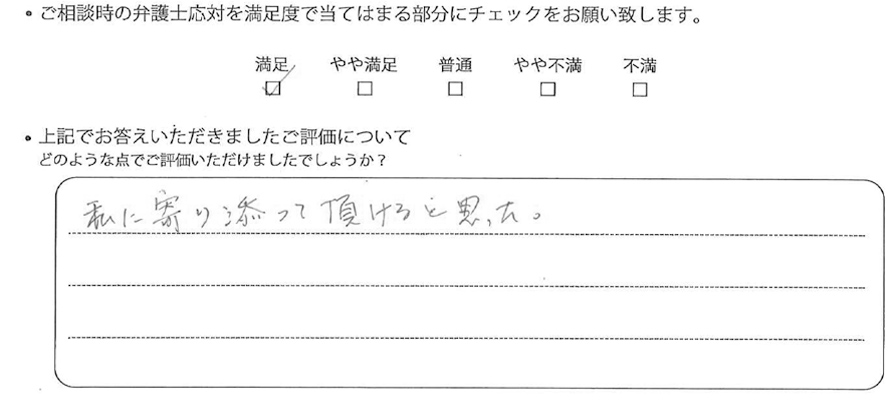 • ご相談時の弁護士応対を満足度で当てはまる部分にチェックをお願い致します。
満足 やや満足 普通 やや不満 不満
☑ □ □ □ □
• 上記でお答えいただきましたご評価について
どのような点でご評価いただけましたでしょうか？
私に寄り添って頂けると思った。